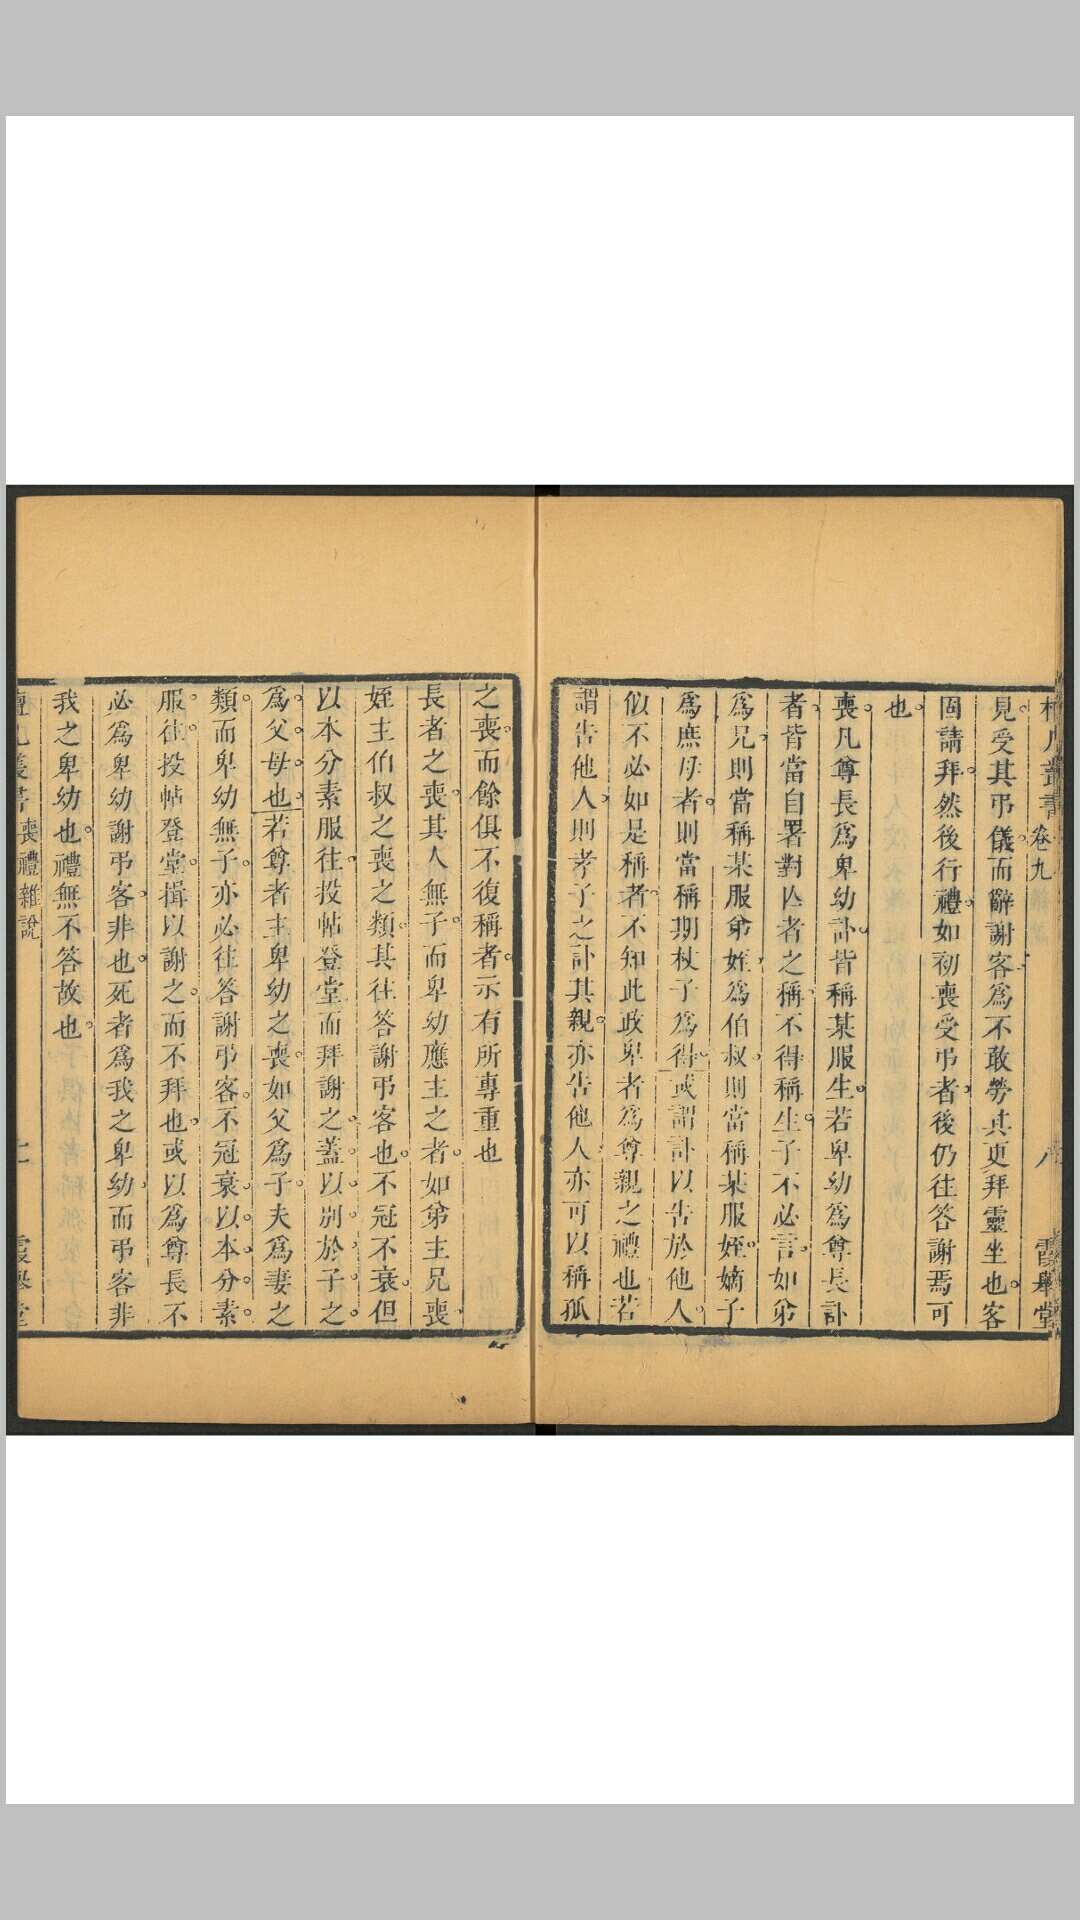 檀几叢書 卷九 八 霞舉堂
見受其弔儀而辭謝客爲不敢勞其更拜靈坐也客
固請拜然後行禮如初喪受弔者後仍往答謝焉可
也
喪凡尊長爲卑幼訃皆稱某服生若卑幼爲尊長訃
者皆當自署對亾者之稱不得稱生子不必言如弟
爲兄則當稱某服弟姪爲伯叔則當稱某服姪嫡子
爲庶母者則當稱期杖子爲得或謂訃以告於他人
似不必如是稱者不知此政卑者爲尊親之禮也若
謂告他人則孝子之訃其親亦告他人亦可以稱孤
之喪而餘俱不復稱者示有所專重也
長者之喪其人無子而卑幼應主之者如弟主兄喪
姪主伯叔之喪之類其往答謝弔客也不冠不衰但
以本分素服往投帖登堂而拜謝之蓋以別於子之
爲父母也若尊者主卑幼之喪如父爲子夫爲妻之
類而卑幼無子亦必往答謝弔客不冠衰以本分素
服往投帖登堂揖以謝之而不拜也或以爲尊長不
必爲卑幼謝弔客非也死者爲我之卑幼而弔客非
我之卑幼也禮無不答故也
檀几叢書 喪禮雜說 霞舉堂